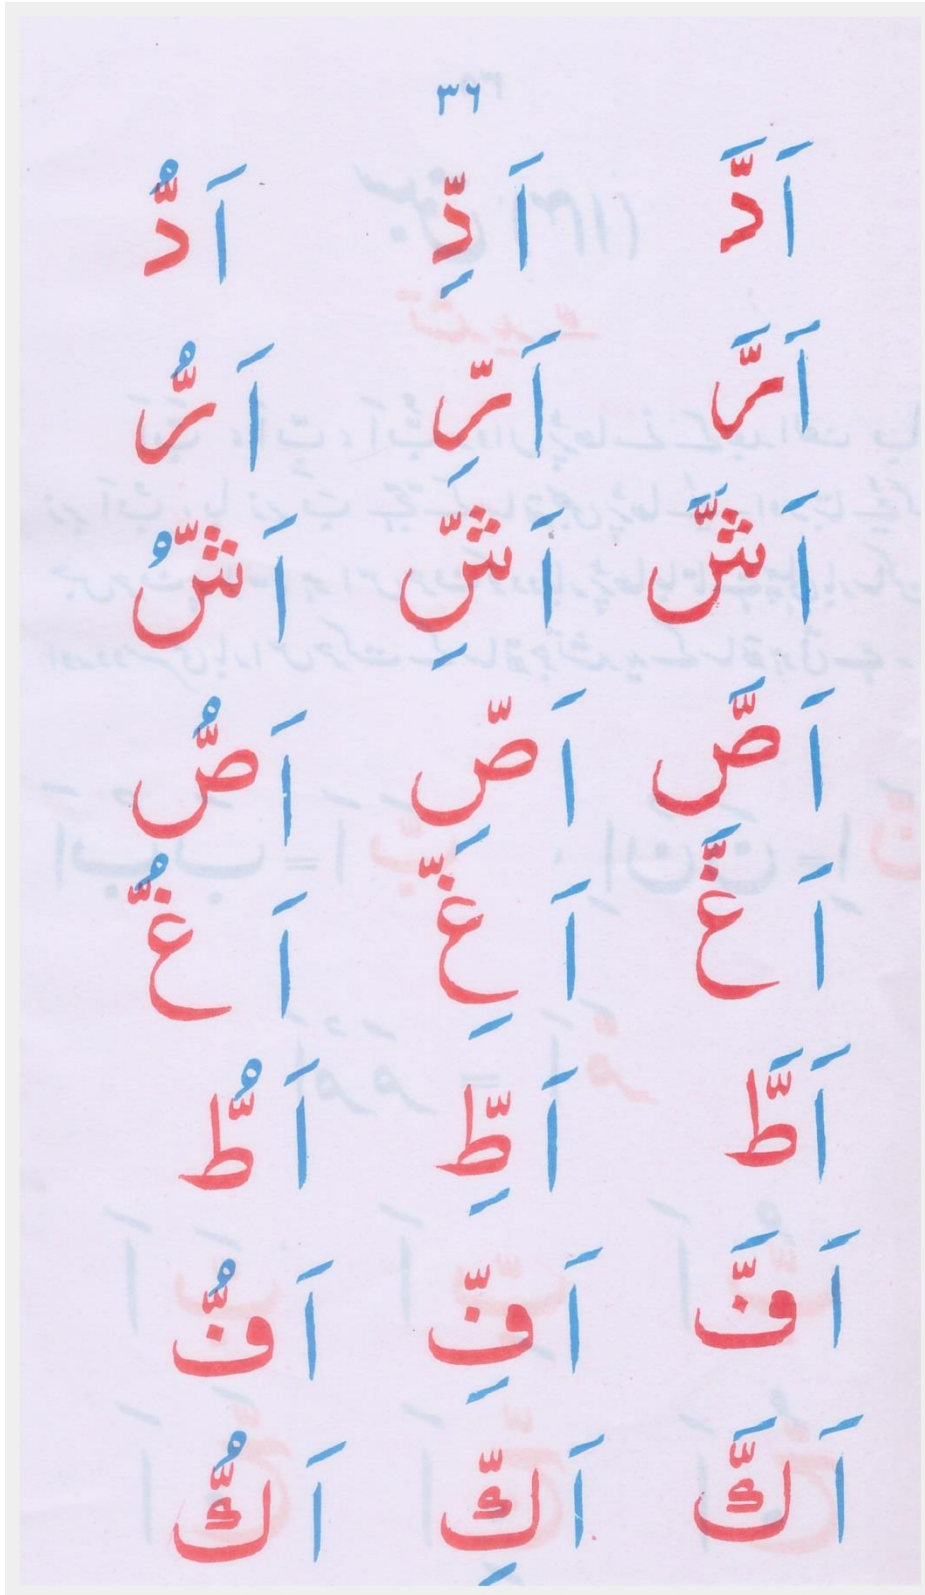 ٣٦
اَدَّ اَدِّ اَدُّ
اَرَّ اَرِّ اَرُّ
اَشَّ اَشِّ اَشُّ
اَصَّ اَصِّ اَصُّ
اَغَّ اَغِّ اَغُّ
اَطَّ اَطِّ اَطُّ
اَفَّ اَفِّ اَفُّ
اَكَّ اَكِّ اَكُّ